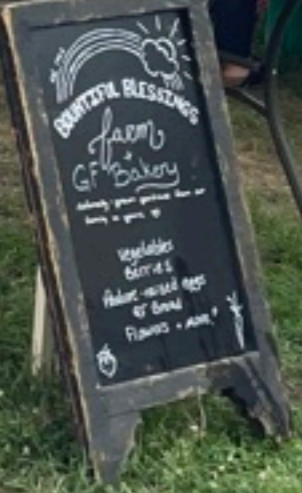 BOUNTIFUL BLESSINGS
farm
+
GF Bakery
Vegetables
Berries
Pasture-raised eggs
GF Bread
Flowers + more!